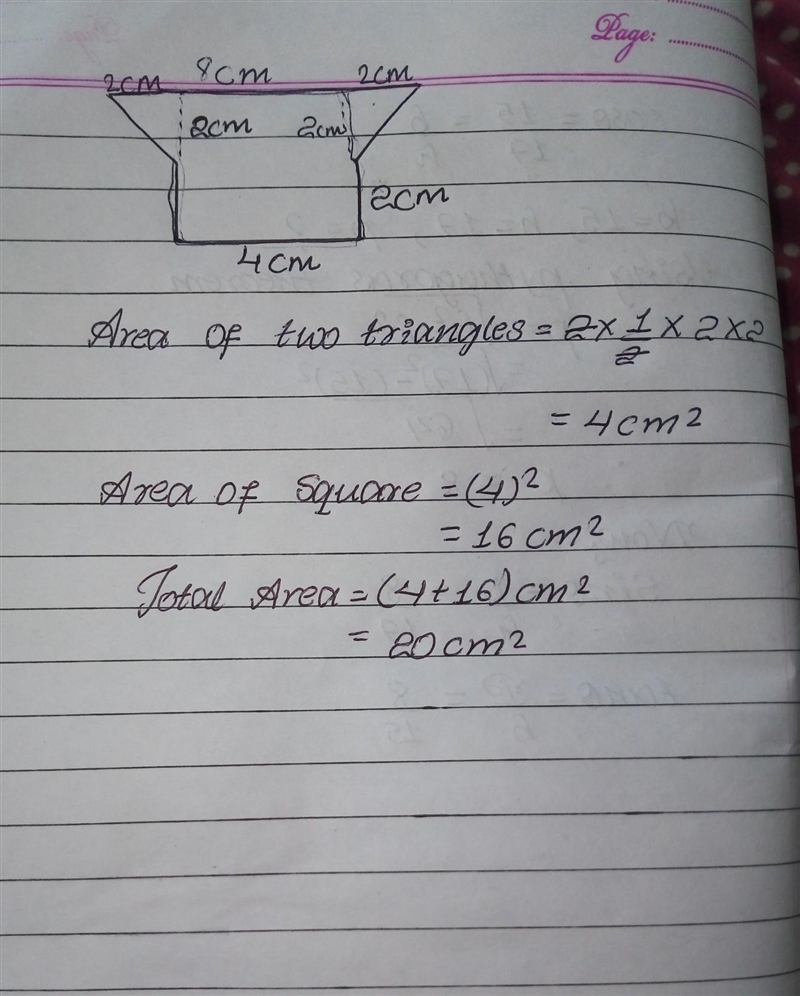 Page:
2cm 8cm 2cm
2cm 2cm
2cm
4cm
Area of two triangles = 2 × 1/2 × 2 × 2
= 4cm²
Area of Square = (4)²
= 16 cm²
Total Area = (4+16) cm²
= 20 cm²